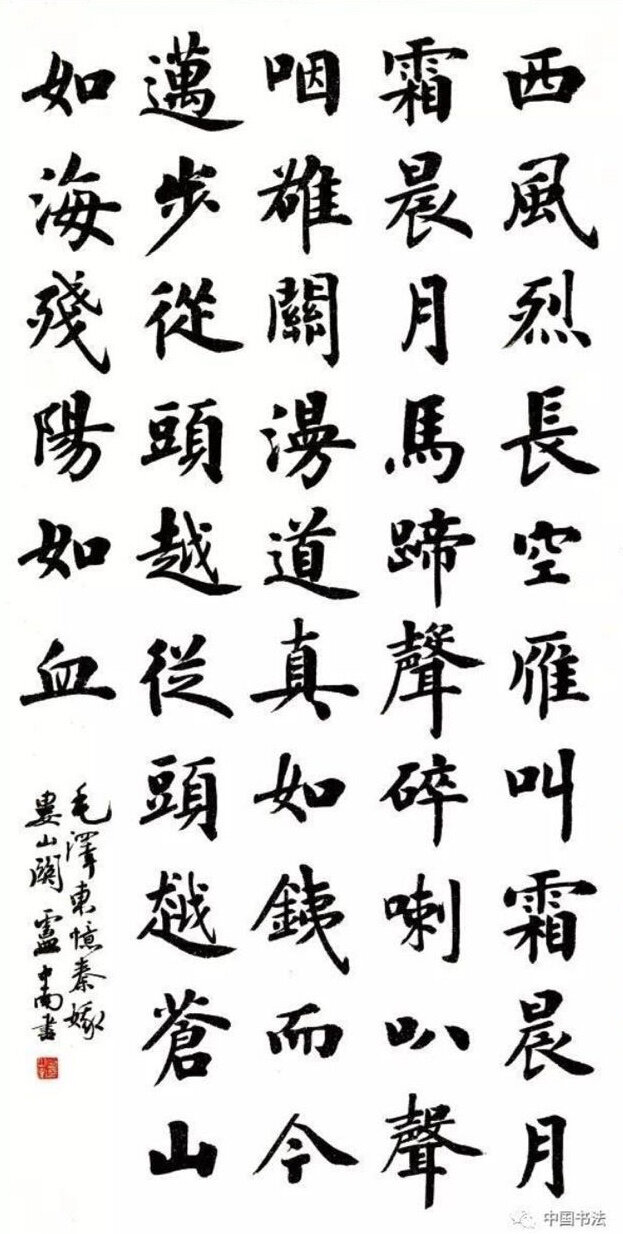 西風烈長空雁叫霜晨月
霜晨月馬蹄聲碎喇叭聲
咽雄關漫道真如銕而今
邁步從頭越從頭越蒼山
如海殘陽如血
毛澤東憶秦娥
婁山關 盧中南書
中国书法